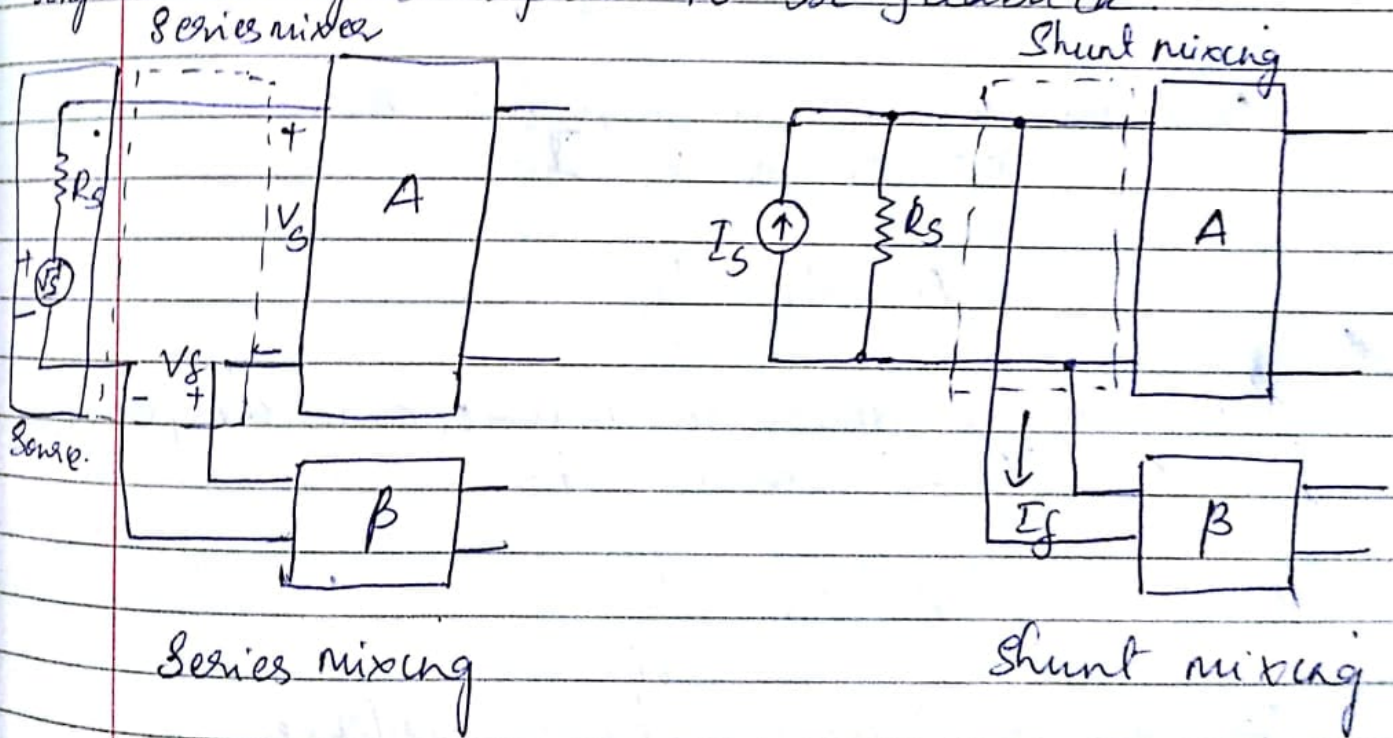 Series mixer
Shunt mixing
Rs
+
Vs
-
+
Vs
-
A
Is
Rs
A
Vf
- +
Sourc.
β
If
β
Series mixing
Shunt mixing